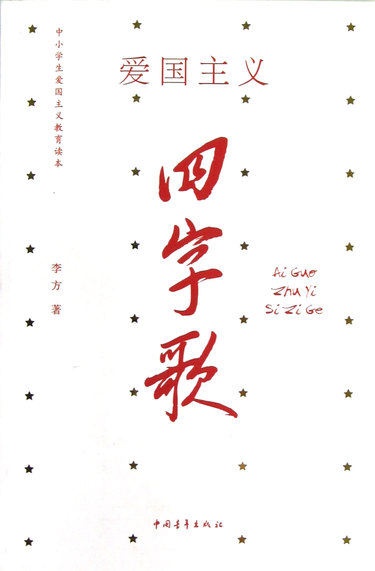 中小学生爱国主义教育读本
爱国主义
四字歌
Ai Guo
Zhu Yi
Si Zi Ge
李方 著
中国青年出版社